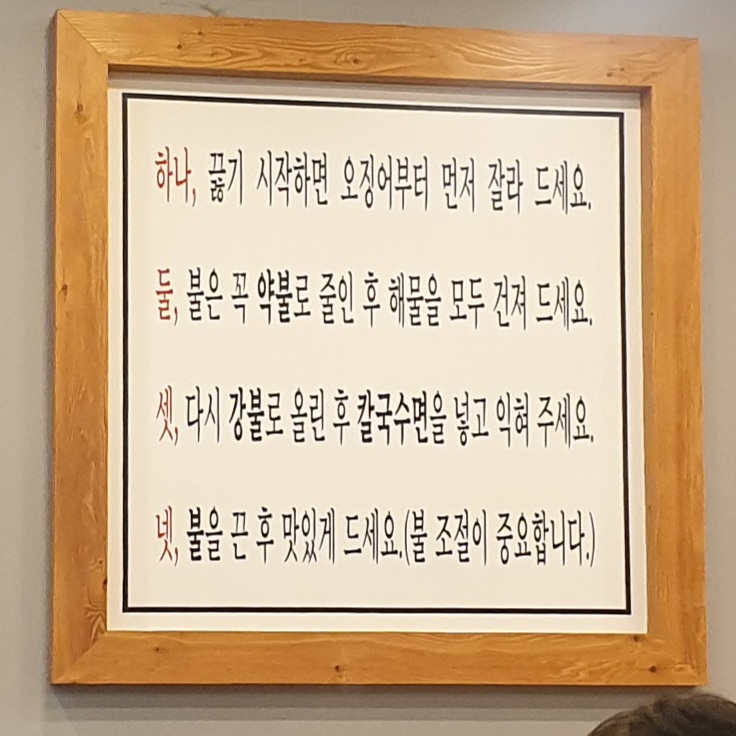 하나, 끓기 시작하면 오징어부터 먼저 잘라 드세요.
둘, 불은 꼭 약불로 줄인 후 해물을 모두 건져 드세요.
셋, 다시 강불로 올린 후 칼국수면을 넣고 익혀 주세요.
넷, 불을 끈 후 맛있게 드세요.(불 조절이 중요합니다.)